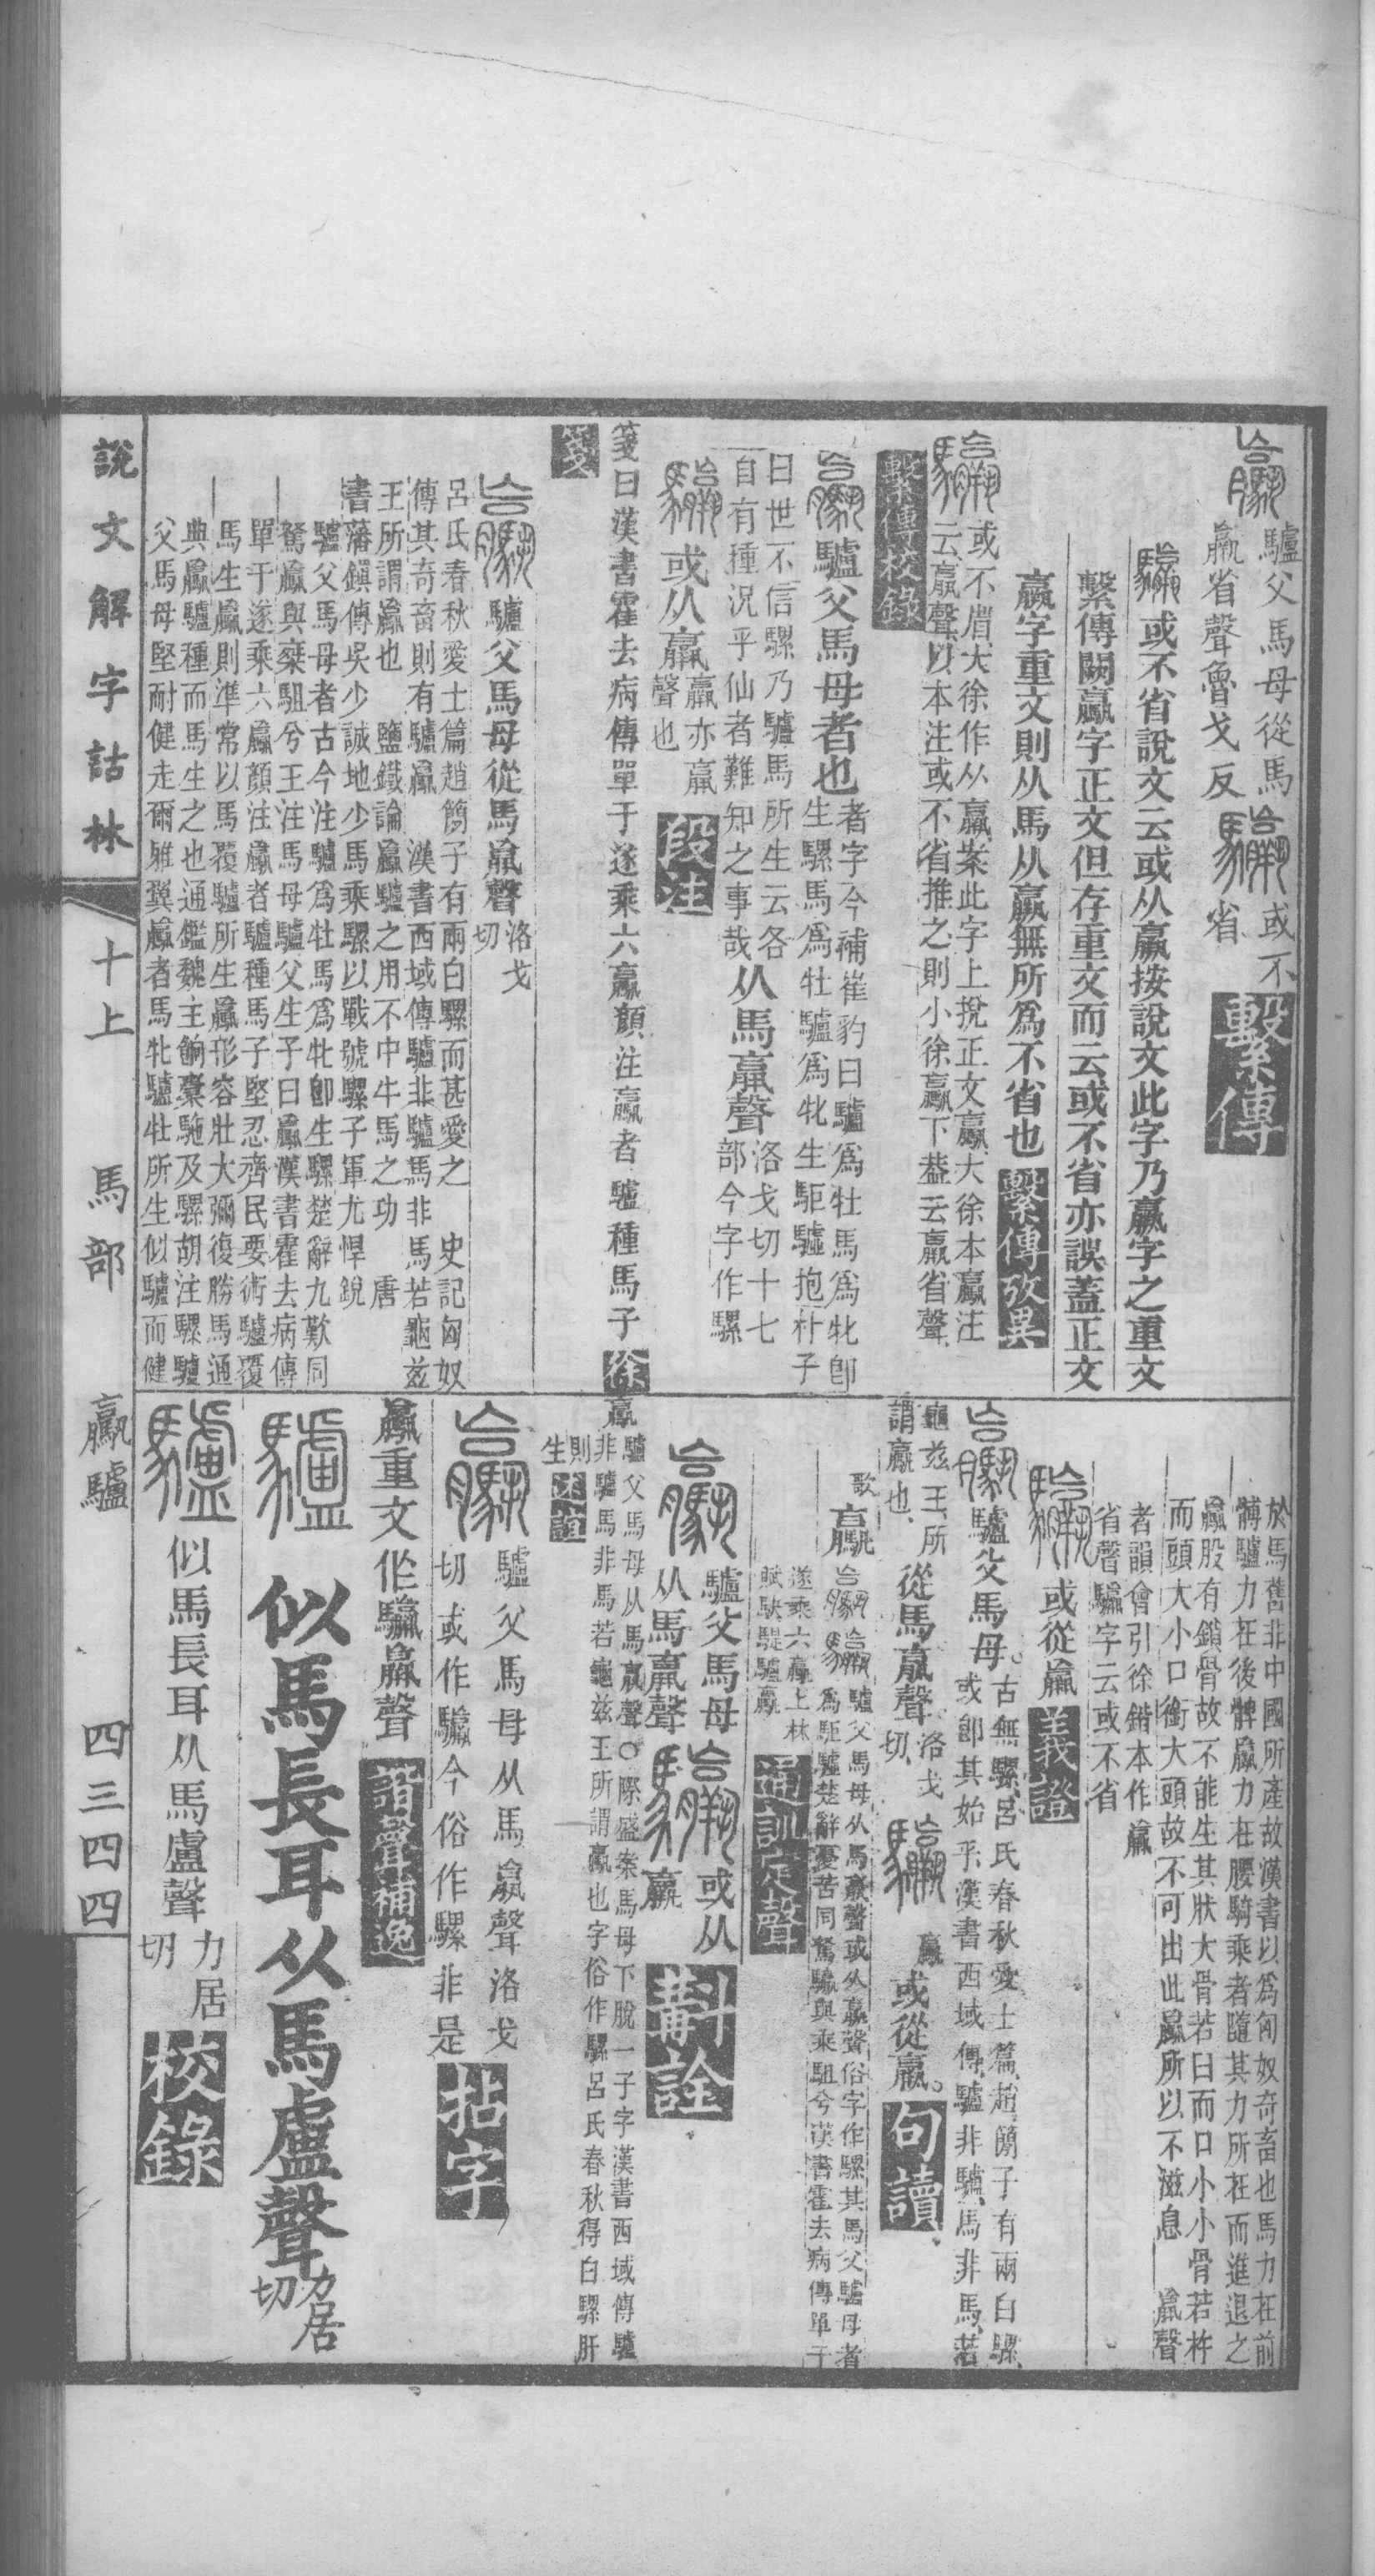 驢父馬母從馬
羸省聲魯戈反
或不
省
繫傳
或不省說文云或从羸按說文此字乃羸字之重文
繫傳闕羸字正文但存重文而云或不省亦誤蓋正文
羸字重文則从馬从羸無所爲不省也
繫傳攷異
或不省大徐作从羸案此字上挩正文羸大徐本羸注
云羸聲以本注或不省推之則小徐羸下葢云羸省聲
繫傳校錄
驢父馬母者也
者字今補崔豹曰驢爲牡馬爲牝卽
生騾馬爲牡驢爲牝生駏驉抱朴子
曰世不信騾乃驢馬所生云各
自有種況乎仙者難知之事哉
从馬𣎆聲
洛戈切十七
部今字作騾
或从羸
羸亦𣎆
聲也
段注
箋曰漢書霍去病傳單于遂乘六羸顏注羸者驢種馬子
徐箋
驢父馬母從馬𣎆聲
洛戈
切
呂氏春秋愛士篇趙簡子有兩白騾而甚愛之　史記匈奴
傳其奇畜則有驢驘　漢書西域傳驢非驢馬非馬若龜茲
王所謂驘也　鹽鐵論驘驢之用不中牛馬之功　唐
書藩鎭傳吳少誠地少馬乘騾以戰號騾子軍尤悍銳
驢父馬母者古今注驢爲牡馬爲牝卽生騾楚辭九歎同
駑驘與椉駔兮王注馬母驢父生子曰驘漢書霍去病傳
單于遂乘六驘顏注驘者驢種馬子堅忍齊民要術驢覆
馬生驘則準常以馬覆驢所生驘形容壯大彌復勝馬通
典驘驢種而馬生之也通鑑魏主餉橐駞及騾胡注騾驢
父馬母堅耐健走爾雅翼驘者馬牝驢牡所生似驢而健
於馬舊非中國所產故漢書以爲匈奴奇畜也馬力在前
髆驢力在後髀驘力在腰騎乘者隨其力所在而進退之
驘股有鎖骨故不能生其狀大骨若臼而口小小骨若杵
而頭大小口銜大頭故不可出此驘所以不滋息　𣎆聲
者韻會引徐鍇本作驘
省聲驘字云或不省
或從羸
義證
驢父馬母
古無騾呂氏春秋愛士篇趙簡子有兩白騾
或卽其始乎漢書西域傳驢非驢馬非馬若
龜茲王所
謂驘也
從馬𣎆聲
洛戈
切
或從羸
句讀
歌
驘
驢父馬母从馬𣎆聲或从羸聲俗字作騾其馬父驢母者
爲駏驉楚辭憂苦同駑驘與乘駔兮漢書霍去病傳單于
遂乘六驘上林
賦駃騠驢驘
通訓定聲
驢父馬母
从馬𣎆聲
或从
羸
斠詮
驢父馬母从馬𣎆聲○際盛案馬母下脫一子字漢書西域傳驢
非驢馬非馬若龜茲王所謂驘也字俗作騾呂氏春秋得白騾肝
則
生
驢父馬母从馬𣎆聲洛戈
切或作驘今俗作騾非是
拈字
驘重文
𣎆聲
諧聲補逸
驢
似馬長耳从馬盧聲
力居
切
驢
似馬長耳从馬盧聲
力居
切
校錄
說文解字詁林
十上
馬部
驘驢
四三四四